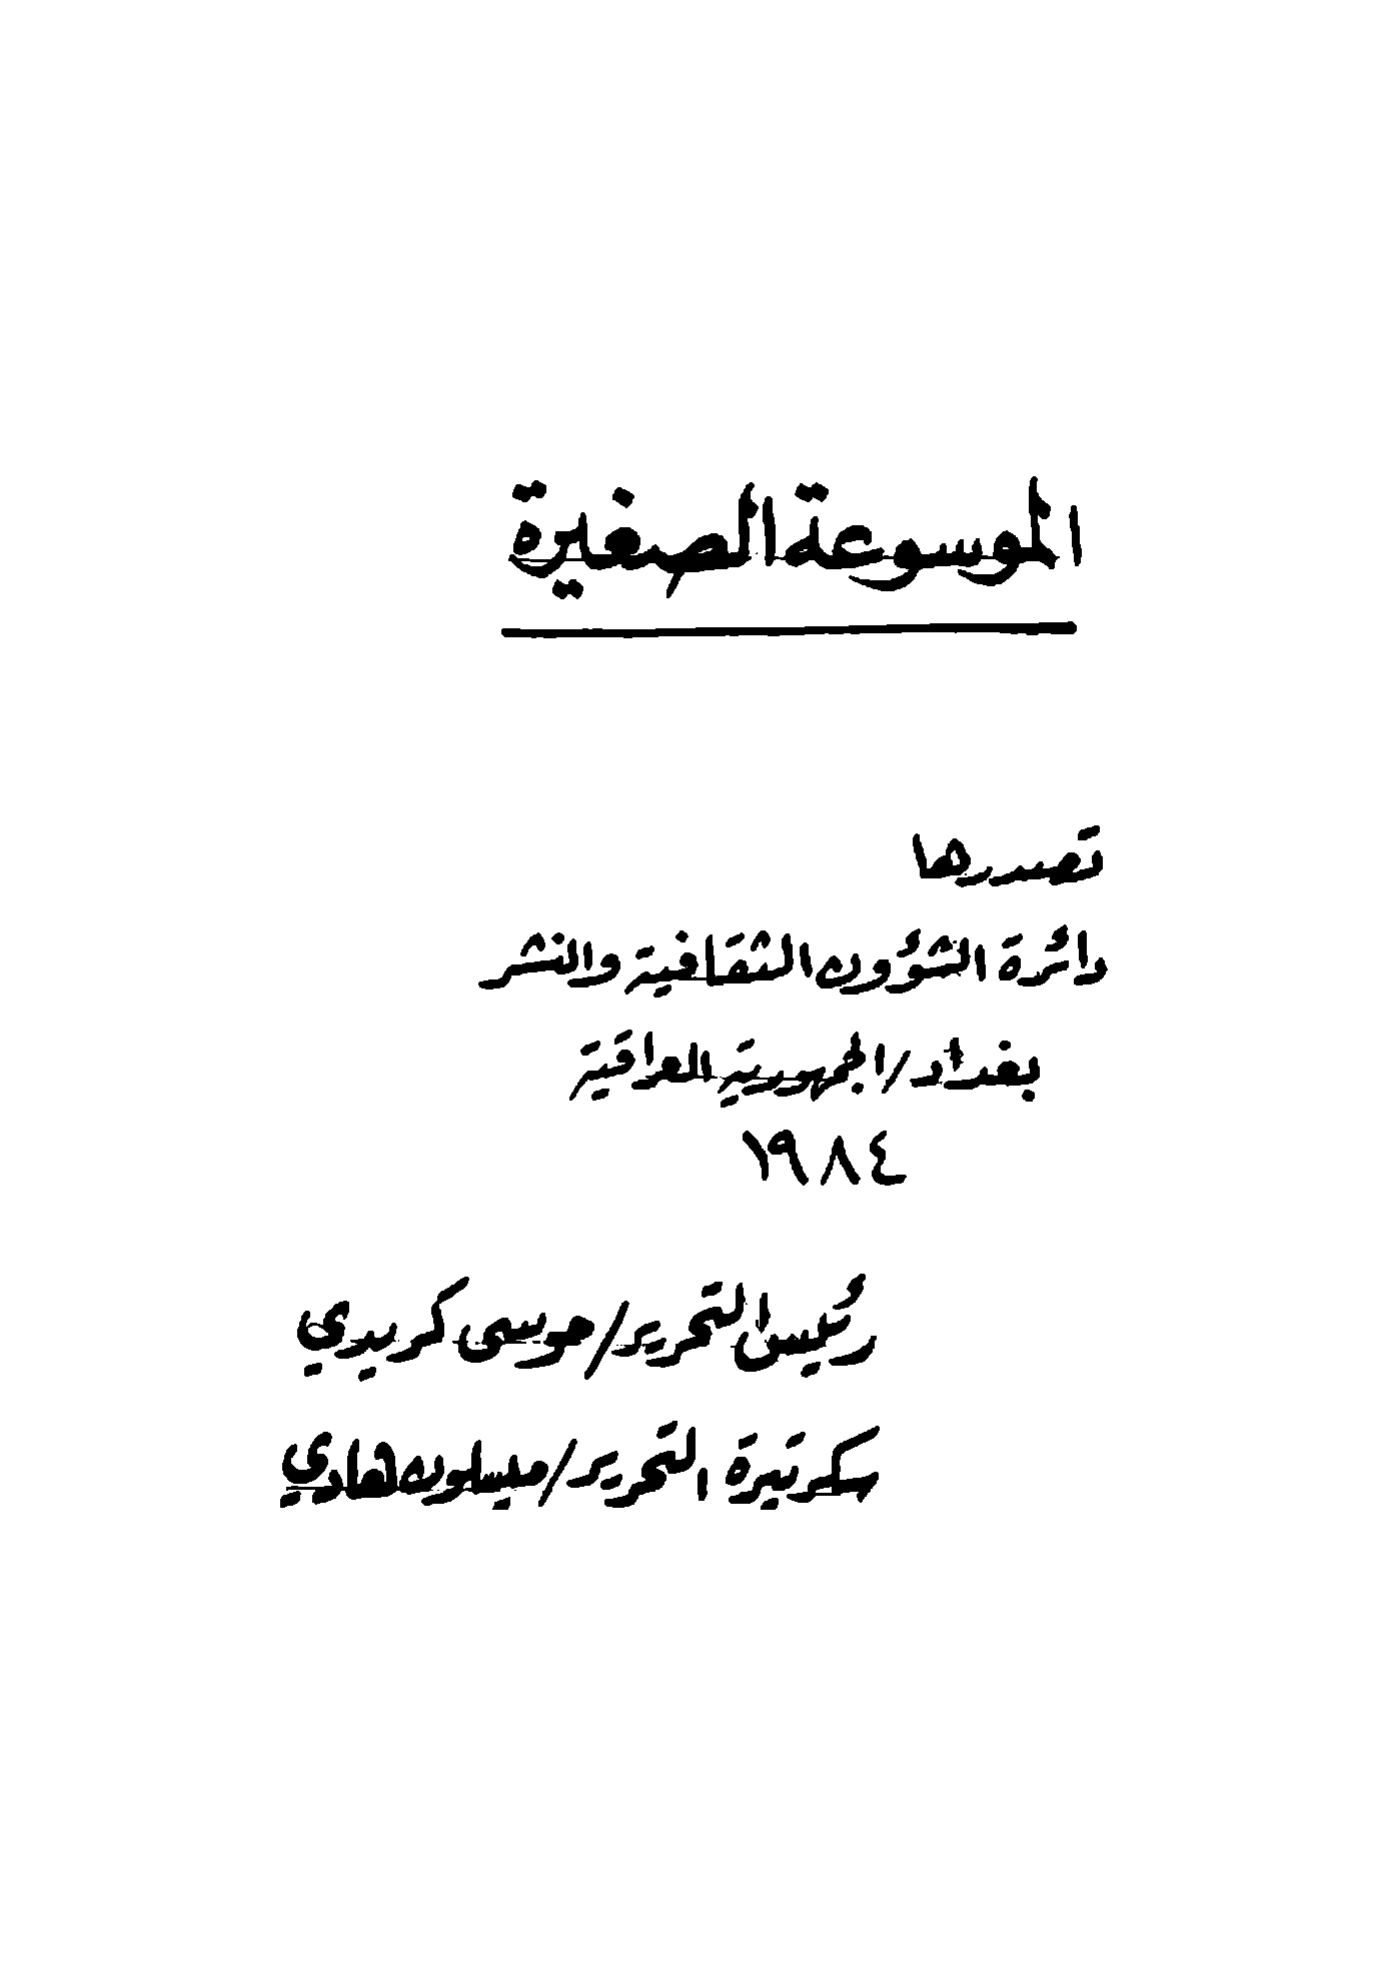 الموسوعة الصغيرة
تصدرها
دائرة الشؤون الثقافية والنشر
بغداد/الجمهورية العراقية
١٩٨٤
رئيس التحرير/موسى كريدي
سكرتيرة التحرير/ميسلون هادي